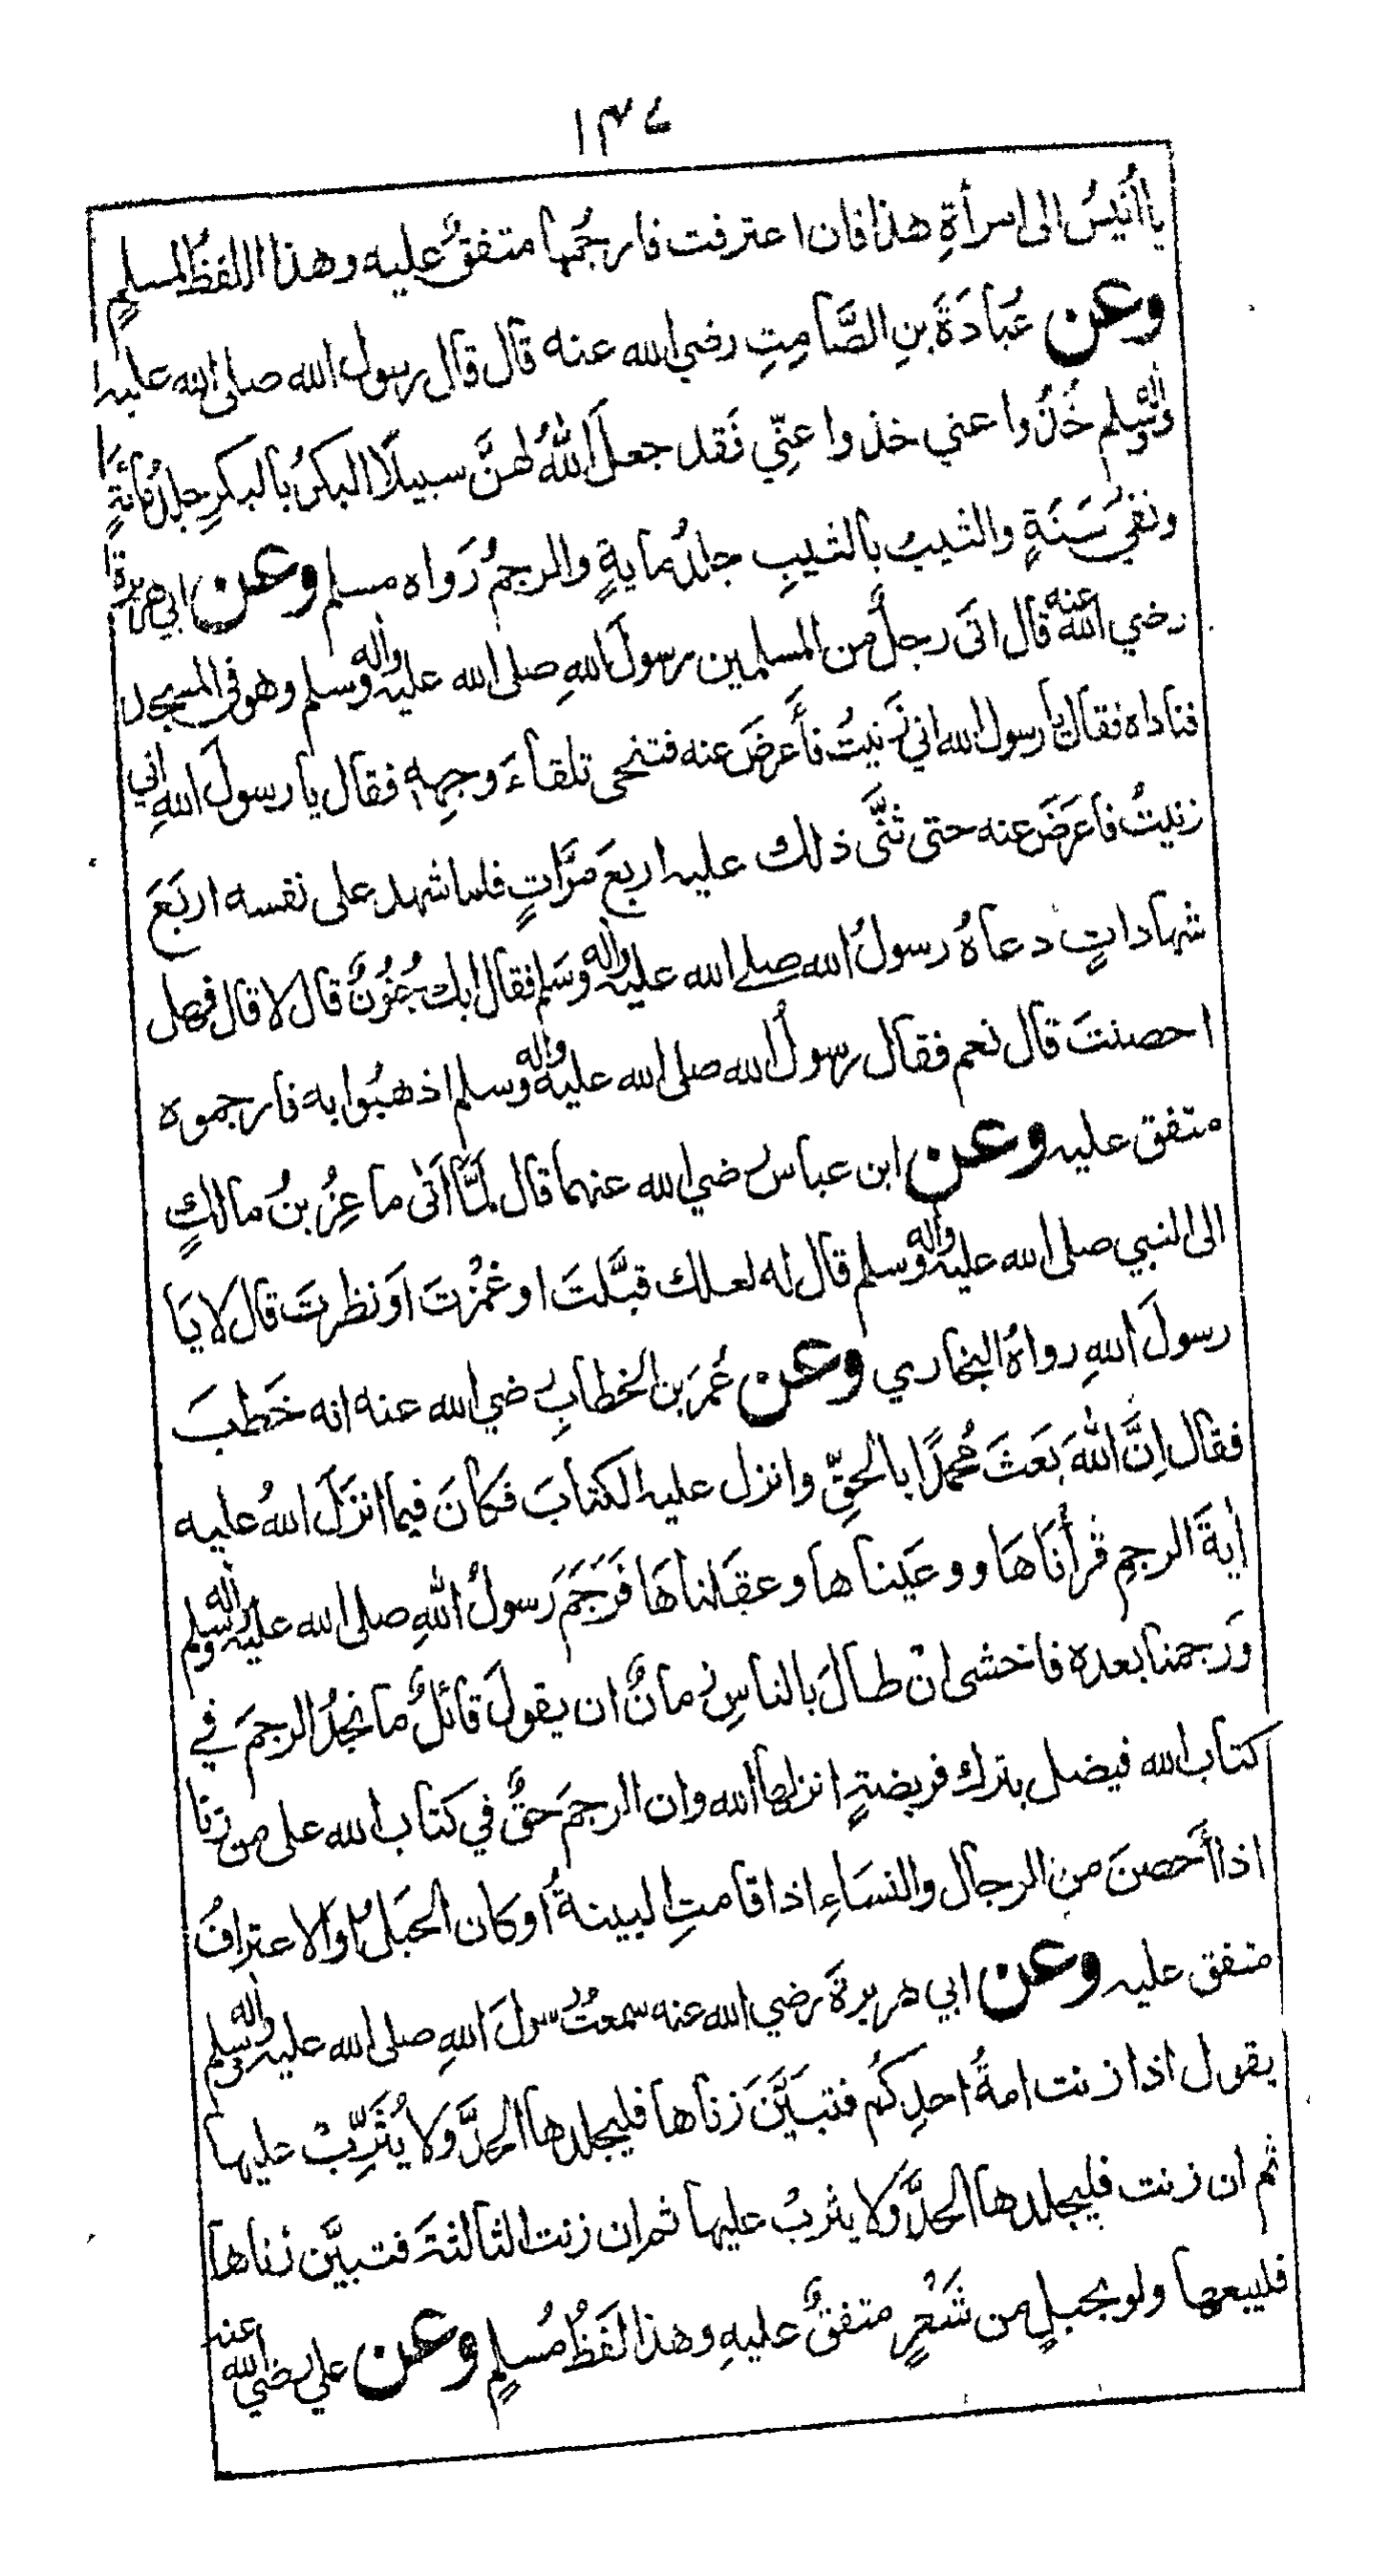 ١٤٧
يا أُنَيسُ الى امرأةِ هذا فان اعترفت فارجُمها متفقٌ عليه وهذا اللفظُ لمسلمٍ
وعن عُبادَةَ بنِ الصَّامِتِ رضي الله عنه قال قال رسول الله صلى الله عليه
واله وسلم خُذُوا عني خذوا عنِّي فَقد جعلَ اللهُ لهنَّ سبيلًا البكرُ بالبكرِ جلدُ مائةٍ
ونفيُ سَنَةٍ والثيبُ بالثيبِ جلدُ مايةٍ والرجمُ رَواه مسلم وعن ابي هريرة
رضي الله عنه قال اتَى رجلٌ من المسلمين رسولَ اللهِ صلى الله عليه واله وسلم وهو في المسجد
فناداه فقال يا رسول الله اني زَنيتُ فأَعرضَ عنه فتنحى تلقاءَ وجهِه فقال يا رسولَ اللهِ اني
زنيتُ فاعرَضَ عنه حتى ثنَّى ذلك عليه اربعَ مرَّاتٍ فلما شهد على نفسه اربَعَ
شهاداتٍ دعاهُ رسولُ الله صلى الله عليه واله وسَلم فقال ابك جُنُونٌ قال لا قال فهل
احصنتَ قال نعم فقال رسولُ الله صلى الله عليه واله وسلم اذهبُوا به فارجموه
متفق عليه وعن ابن عباس رضي الله عنهما قال لمَّا اَتى ماعِزُ بنُ مالكٍ
الى النبي صلى الله عليه واله وسلم قال له لعلك قبَّلتَ او غمزْتَ اَو نظرتَ قال لا يَا
رسولَ اللهِ رواهُ البخاري وعن عُمرَ بن الخطابِ رضي الله عنه انه خَطبَ
فقال اِنَّ اللهَ بَعَثَ مُحمدًا بالحقِّ وانزل عليه الكتابَ فكانَ فيما انزَلَ اللهُ عليه
اٰيةَ الرجمِ قرأنَاهَا ووعَيناها وعقَلناهَا فَرَجَمَ رَسولُ اللهِ صلى الله عليه واله وسلم
وَرجمنا بعده فاخشى انْ طالَ بالناسِ زمانٌ ان يقولَ قائلٌ ما نجدُ الرجمَ في
كتاب الله فيضل بترك فريضةٍ انزلها الله وان الرجمَ حقٌ في كتاب الله على من زنا
اذا أَحصنَ من الرجال والنسَاءِ اذا قامتِ البينةُ او كان الحبَلُ او الاعترافُ
متفق عليه وعن ابي هريرةَ رضي الله عنه سمعتُ رسولَ اللهِ صلى الله عليه واله وسلم
يقول اذا زنت امةُ احدِكُم فتبيَّنَ زناها فليجلدها الحدَّ ولا يُثَرِّبْ عليها
ثم ان زنت فليجلدها الحدَّ ولا يثربْ عليها ثم ان زنت الثالثةَ فتبيَّن زناها
فليبعها ولو بحبلٍ من شَعْرٍ متفقٌ عليهِ وهذا لَفظُ مُسلمٍ وعن علي رضي الله عنه